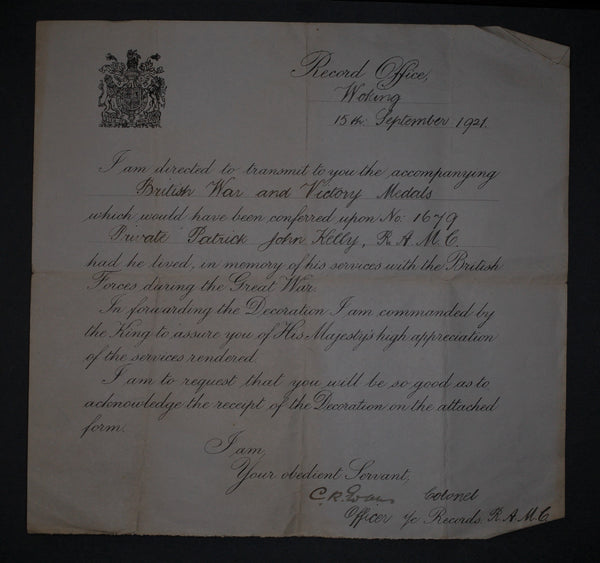 Record Office,
Woking
15th September 1921.
I am directed to transmit to you the accompanying
British War and Victory Medals
which would have been conferred upon No: 1679
Private Patrick John Kelly, R.A.M.C.
had he lived, in memory of his services with the British
Forces during the Great War.
In forwarding the Decoration I am commanded by
the King to assure you of His Majesty's high appreciation
of the services rendered.
I am to request that you will be so good as to
acknowledge the receipt of the Decoration on the attached
form.
I am,
Your obedient Servant,
C.R. Evans Colonel
Officer i/c Records, R.A.M.C.